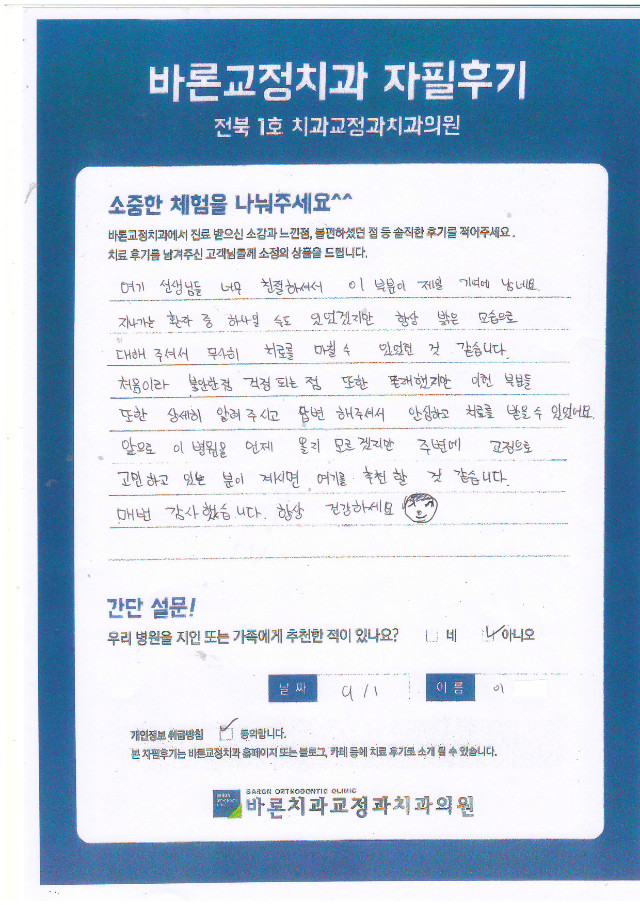 바론교정치과 자필후기
전북 1호 치과교정과치과의원
소중한 체험을 나눠주세요^^
바론교정치과에서 진료 받으신 소감과 느낀점, 불편하셨던 점 등 솔직한 후기를 적어주세요.
치료 후기를 남겨주신 고객님들께 소정의 상품을 드립니다.
여기 선생님들 너무 친절하셔서 이 부분이 제일 기억에 남네요.
지나가는 환자 중 하나일 수도 있었겠지만 항상 밝은 모습으로
대해 주셔서 무사히 치료를 마칠 수 있었던 것 같습니다.
처음이라 불안한점 걱정 되는 점 또한 존재했지만 이런 부분들
또한 상세히 알려 주시고 답변 해주셔서 안심하고 치료를 받을 수 있었어요.
앞으로 이 병원을 언제 올지 모르겠지만 주변에 교정으로
고민하고 있는 분이 계시면 여기를 추천 할 것 같습니다.
매번 감사했습니다. 항상 건강하세요
간단 설문!
우리 병원을 지인 또는 가족에게 추천한 적이 있나요? 네 아니오
날짜 9/1 이름 이
개인정보 취급방침 동의합니다.
본 자필후기는 바론교정치과 홈페이지 또는 블로그, 카페 등에 치료 후기로 소개 될 수 있습니다.
BARON ORTHODONTIC CLINIC
바론치과교정과치과의원